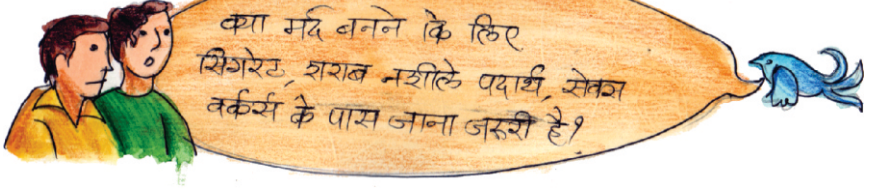 क्या मर्द बनने के लिए
सिगरेट, शराब नशीले पदार्थ, सेक्स
वर्कर्स के पास जाना जरूरी है?